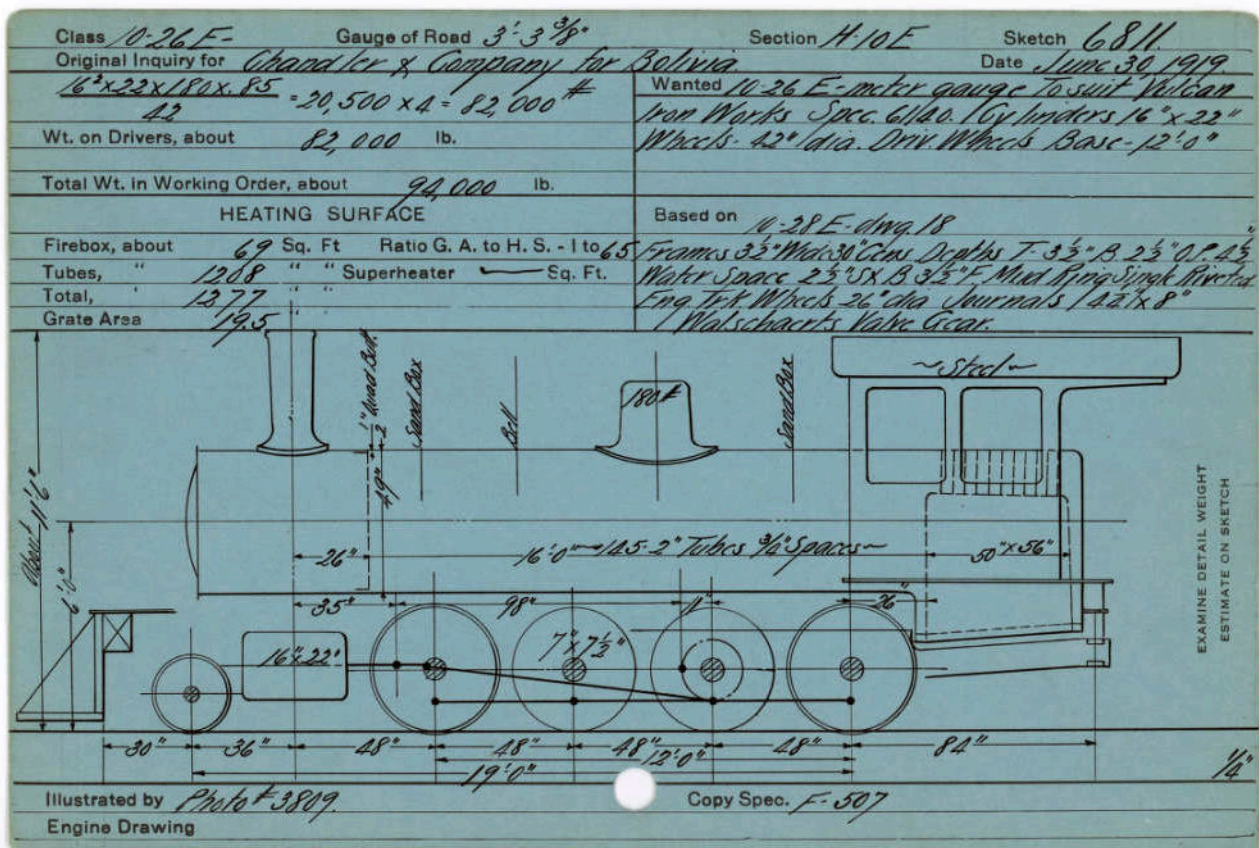 Class 10-26 E- Gauge of Road 3'-3 3/8" Section H-10E Sketch 6811.
Original Inquiry for Chandler & Company for Bolivia. Date June 30, 1919.
16²x22x180x.85
42
=20,500 x 4 = 82,000 #
Wt. on Drivers, about 82,000 lb.
Total Wt. in Working Order, about 94,000 lb.
HEATING SURFACE
Firebox, about 69 Sq. Ft Ratio G. A. to H. S. - 1 to 65
Tubes, " 1208 " " Superheater Sq. Ft.
Total, " 1277 " "
Grate Area 19.5 " "
Wanted 10-26 E-meter gauge To suit Vulcan
Iron Works Spec. 61140. Cylinders 16" x 22"
Wheels- 42" dia. Driv. Wheels Base- 12'-0"
Based on 10-28 E-dwg. 18
Frames 3½" Wide 30" Cens Depths T-3½" B. 2½" O.P. 4½"
Water Space 2½" S&B 3½" F. Mud Ring Single Riveted
Eng. Trk Wheels 26" dia Journals 4½" x 8"
Walschaerts Valve Gear.
~Steel~
½" Quad Butt.
Sand Box
Bell
180#
Sand Box
49"
About 11'-6"
6'-0"
26"
16'-0" 145-2" Tubes ¾" Spaces
50" x 56"
35"
98"
11"
26"
16" x 22"
7" x 7½"
30" 36" 48" 48" 48" 48" 84"
12'-0"
19'-0"
¼"
EXAMINE DETAIL WEIGHT
ESTIMATE ON SKETCH
Illustrated by Photo # 3809. Copy Spec. F-507
Engine Drawing